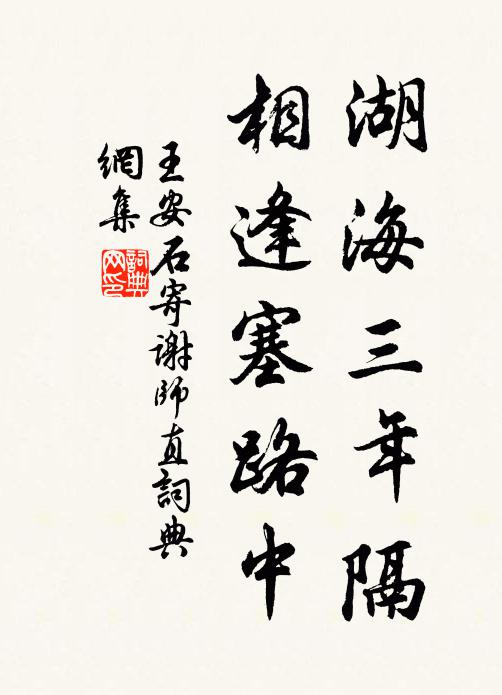 湖海三年隔
相逢塞路中
王安石寄謝師直詞典
網集
詞典网印